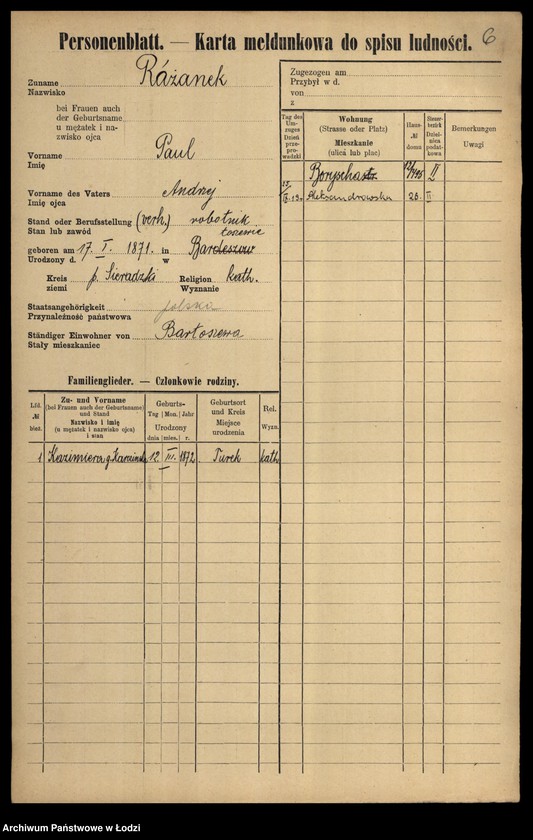 Personenblatt. — Karta meldunkowa do spisu ludności.
6
Zuname Rážanek
Nazwisko
bei Frauen auch
der Geburtsname
u mężatek i na-
zwisko ojca
Vorname Paul
Imię
Vorname des Vaters Andrzej
Imię ojca
Stand oder Berufsstellung (verh.) robotnik
Stan lub zawód
geboren am 17. I. 1871. in
Urodzony d. w
Kreis p. Sieradzki Religion kath.
ziemi Wyznanie
Staatsangehörigkeit polska
Przynależność państwowa
Ständiger Einwohner von Bartoszewa
Stały mieszkaniec
Familienglieder. — Członkowie rodziny.
Lfd. № bież.
Zu- und Vorname
(bei Frauen auch der Geburtsname)
und Stand
Nazwisko i imię
(u mężatek i nazwisko ojca)
i stan
Geburts-
Tag Mon. Jahr
Urodzony
dnia mies. r.
Geburtsort
und Kreis
Miejsce
urodzenia
Rel.
Wyzn.
1 Kazimiera g. 12 III. 1872 Turek kath
Zugezogen am
Przybył w d.
von
z
Tag des
Um-
zuges
Dzień
prze-
pro-
wadzki
Wohnung
(Strasse oder Platz)
Mieszkanie
(ulica lub plac)
Haus-
№
domu
Steuer-
bezirk
Dziel-
nica
podat-
kowa
Bemerkungen
Uwagi
Boryschastr. II
Aleksandrowska 26. II
Archiwum Państwowe w Łodzi